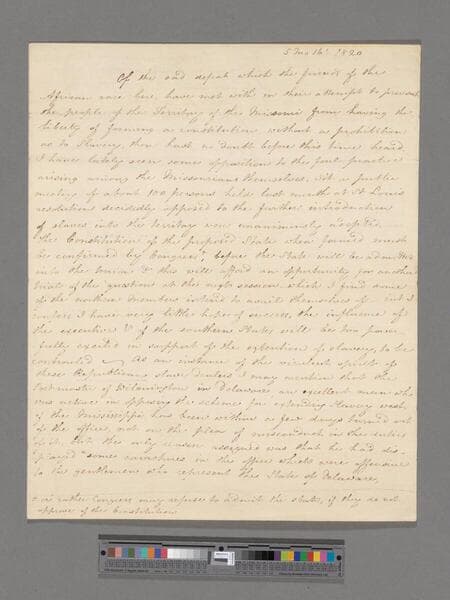 5 mo 16th 1820
Of the sad defeat which the friends of the
African race here, have met with in their attempt to prevent
the people of the Territory of the Missouri from having the
liberty of forming a constitution without a prohibition
as to Slavery, thou hast no doubt before this time heard
I have lately seen some opposition to the foul practice
arising among the Missourians themselves. At a public
meeting of about 100 persons held last month at St Louis
resolutions decidedly opposed to the further introduction
of slaves into the territory were unanimously adopted.
The Constitution of the proposed State when formed must
be confirmed by Congress, before the State will be admitted
into the Union & this will afford an opportunity for another
trial of the question at the next session which I find some
of the northern members intend to avail themselves of. but I
confess I have very little hopes of success, the influence of
the executive & of the southern States will be too power-
fully excited in support of the extention of slavery, to be
controuled As an instance of the virulent spirit of
these Republican slave dealers I may mention that the
Postmaster of Wilmington in Delaware an excellent man who
was active in opposing the scheme for extending Slavery west
of the Mississippi has been within a few days turned out
of the office, not on the plea of misconduct in the duties
of it. but the only reason assigned was that he had dis-
played some caricatures in the office which were offensive
to the gentlemen who represent the State of Delaware,
or rather Congress may refuse to admit the state, if they do not
approve of the Constitution